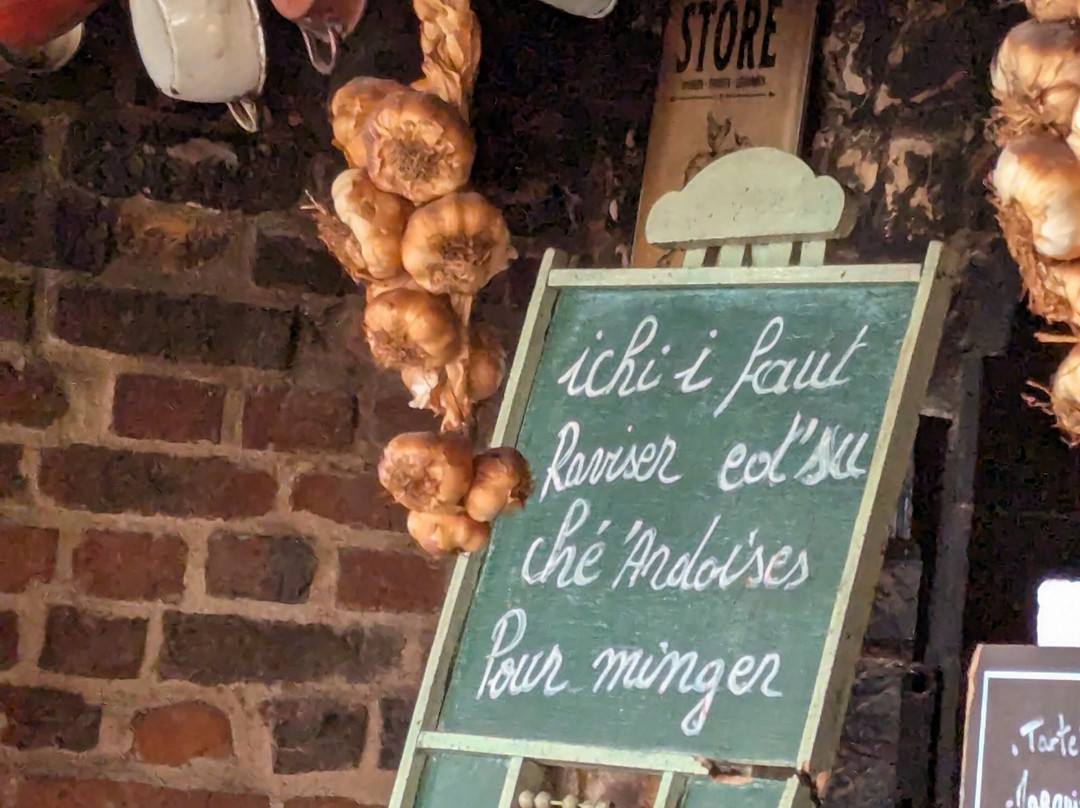 STORE
ichi i faut
Raviser eed'su
ché 'Ardoises
Pour minger
Tarte